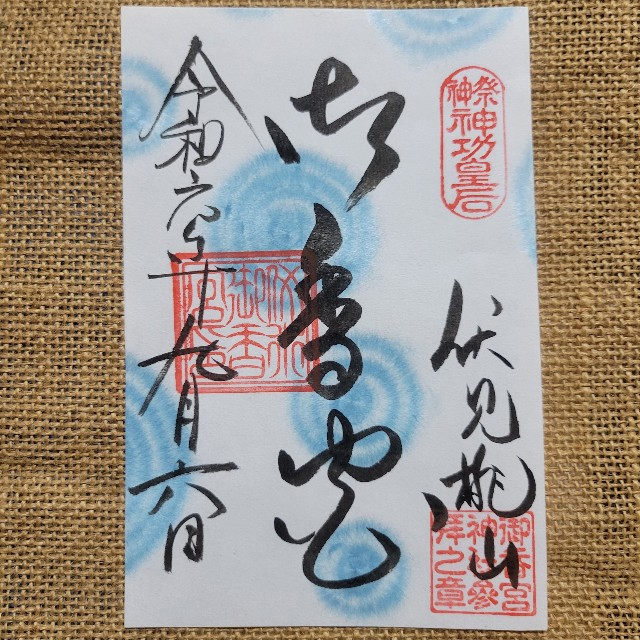 祭神
神功皇后
伏見桃山
御香宮
神社参
拝之章
御香宮
令和六年九月六日